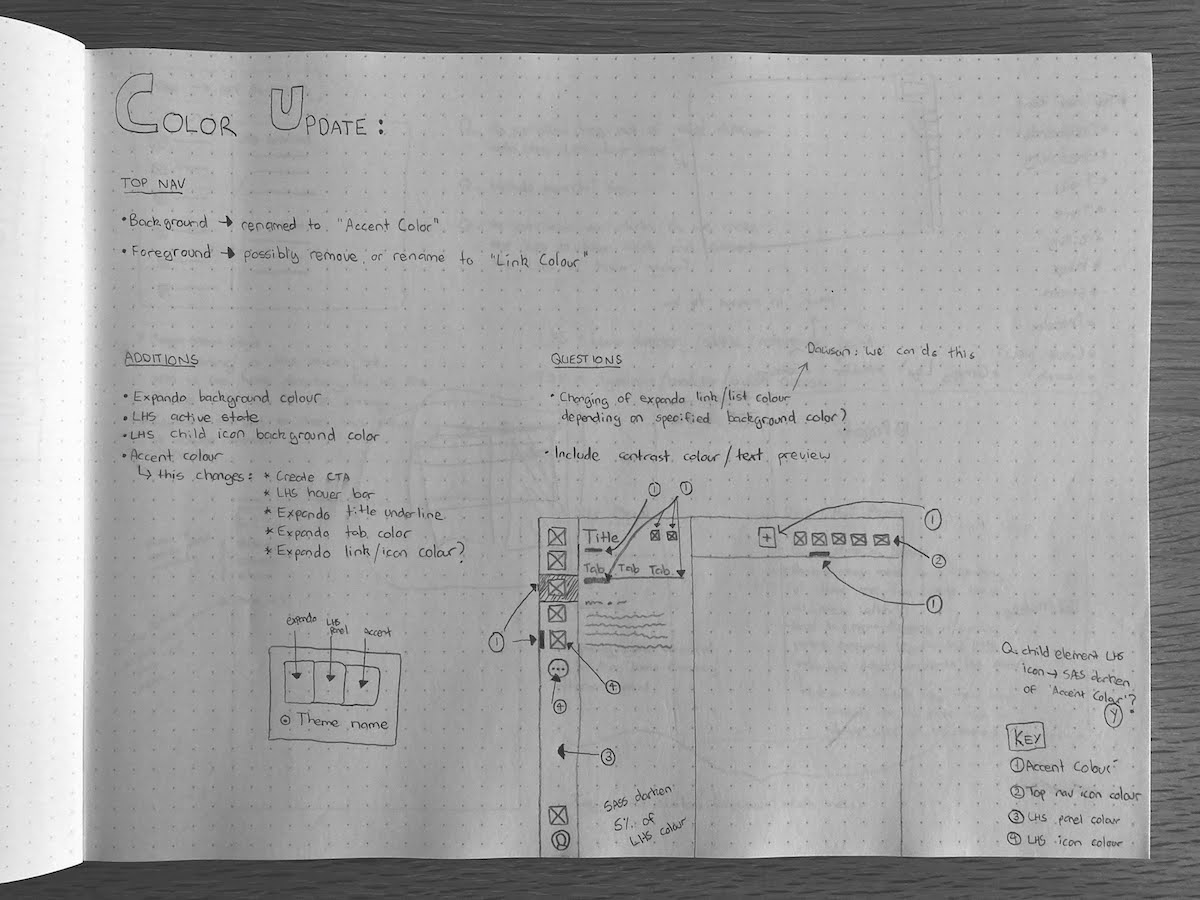 COLOR UPDATE:
TOP NAV
• Background → renamed to "Accent Color"
• Foreground → possibly remove or rename to "Link Colour"
ADDITIONS
• Expando background colour
• LHS active state
• LHS child icon background color
• Accent colour
↳ this changes: * Create CTA
* LHS hover bar
* Expando title underline
* Expando tab color
* Expando link/icon color?
expando
LHS panel
accent
Theme name
QUESTIONS
Dawson: we can do this
• Changing of expando link/list colour
depending on specified background color?
• Include contrast colour/text preview
1 1
Title
+
1
2
Tab Tab Tab
1
1
4
4
3
SASS darken
5% of
LHS colour
Q. child element LHS
icon → SAS darken
of 'Accent Color'?
Y
KEY
1 Accent Colour
2 Top nav icon colour
3 LHS panel colour
4 LHS icon colour